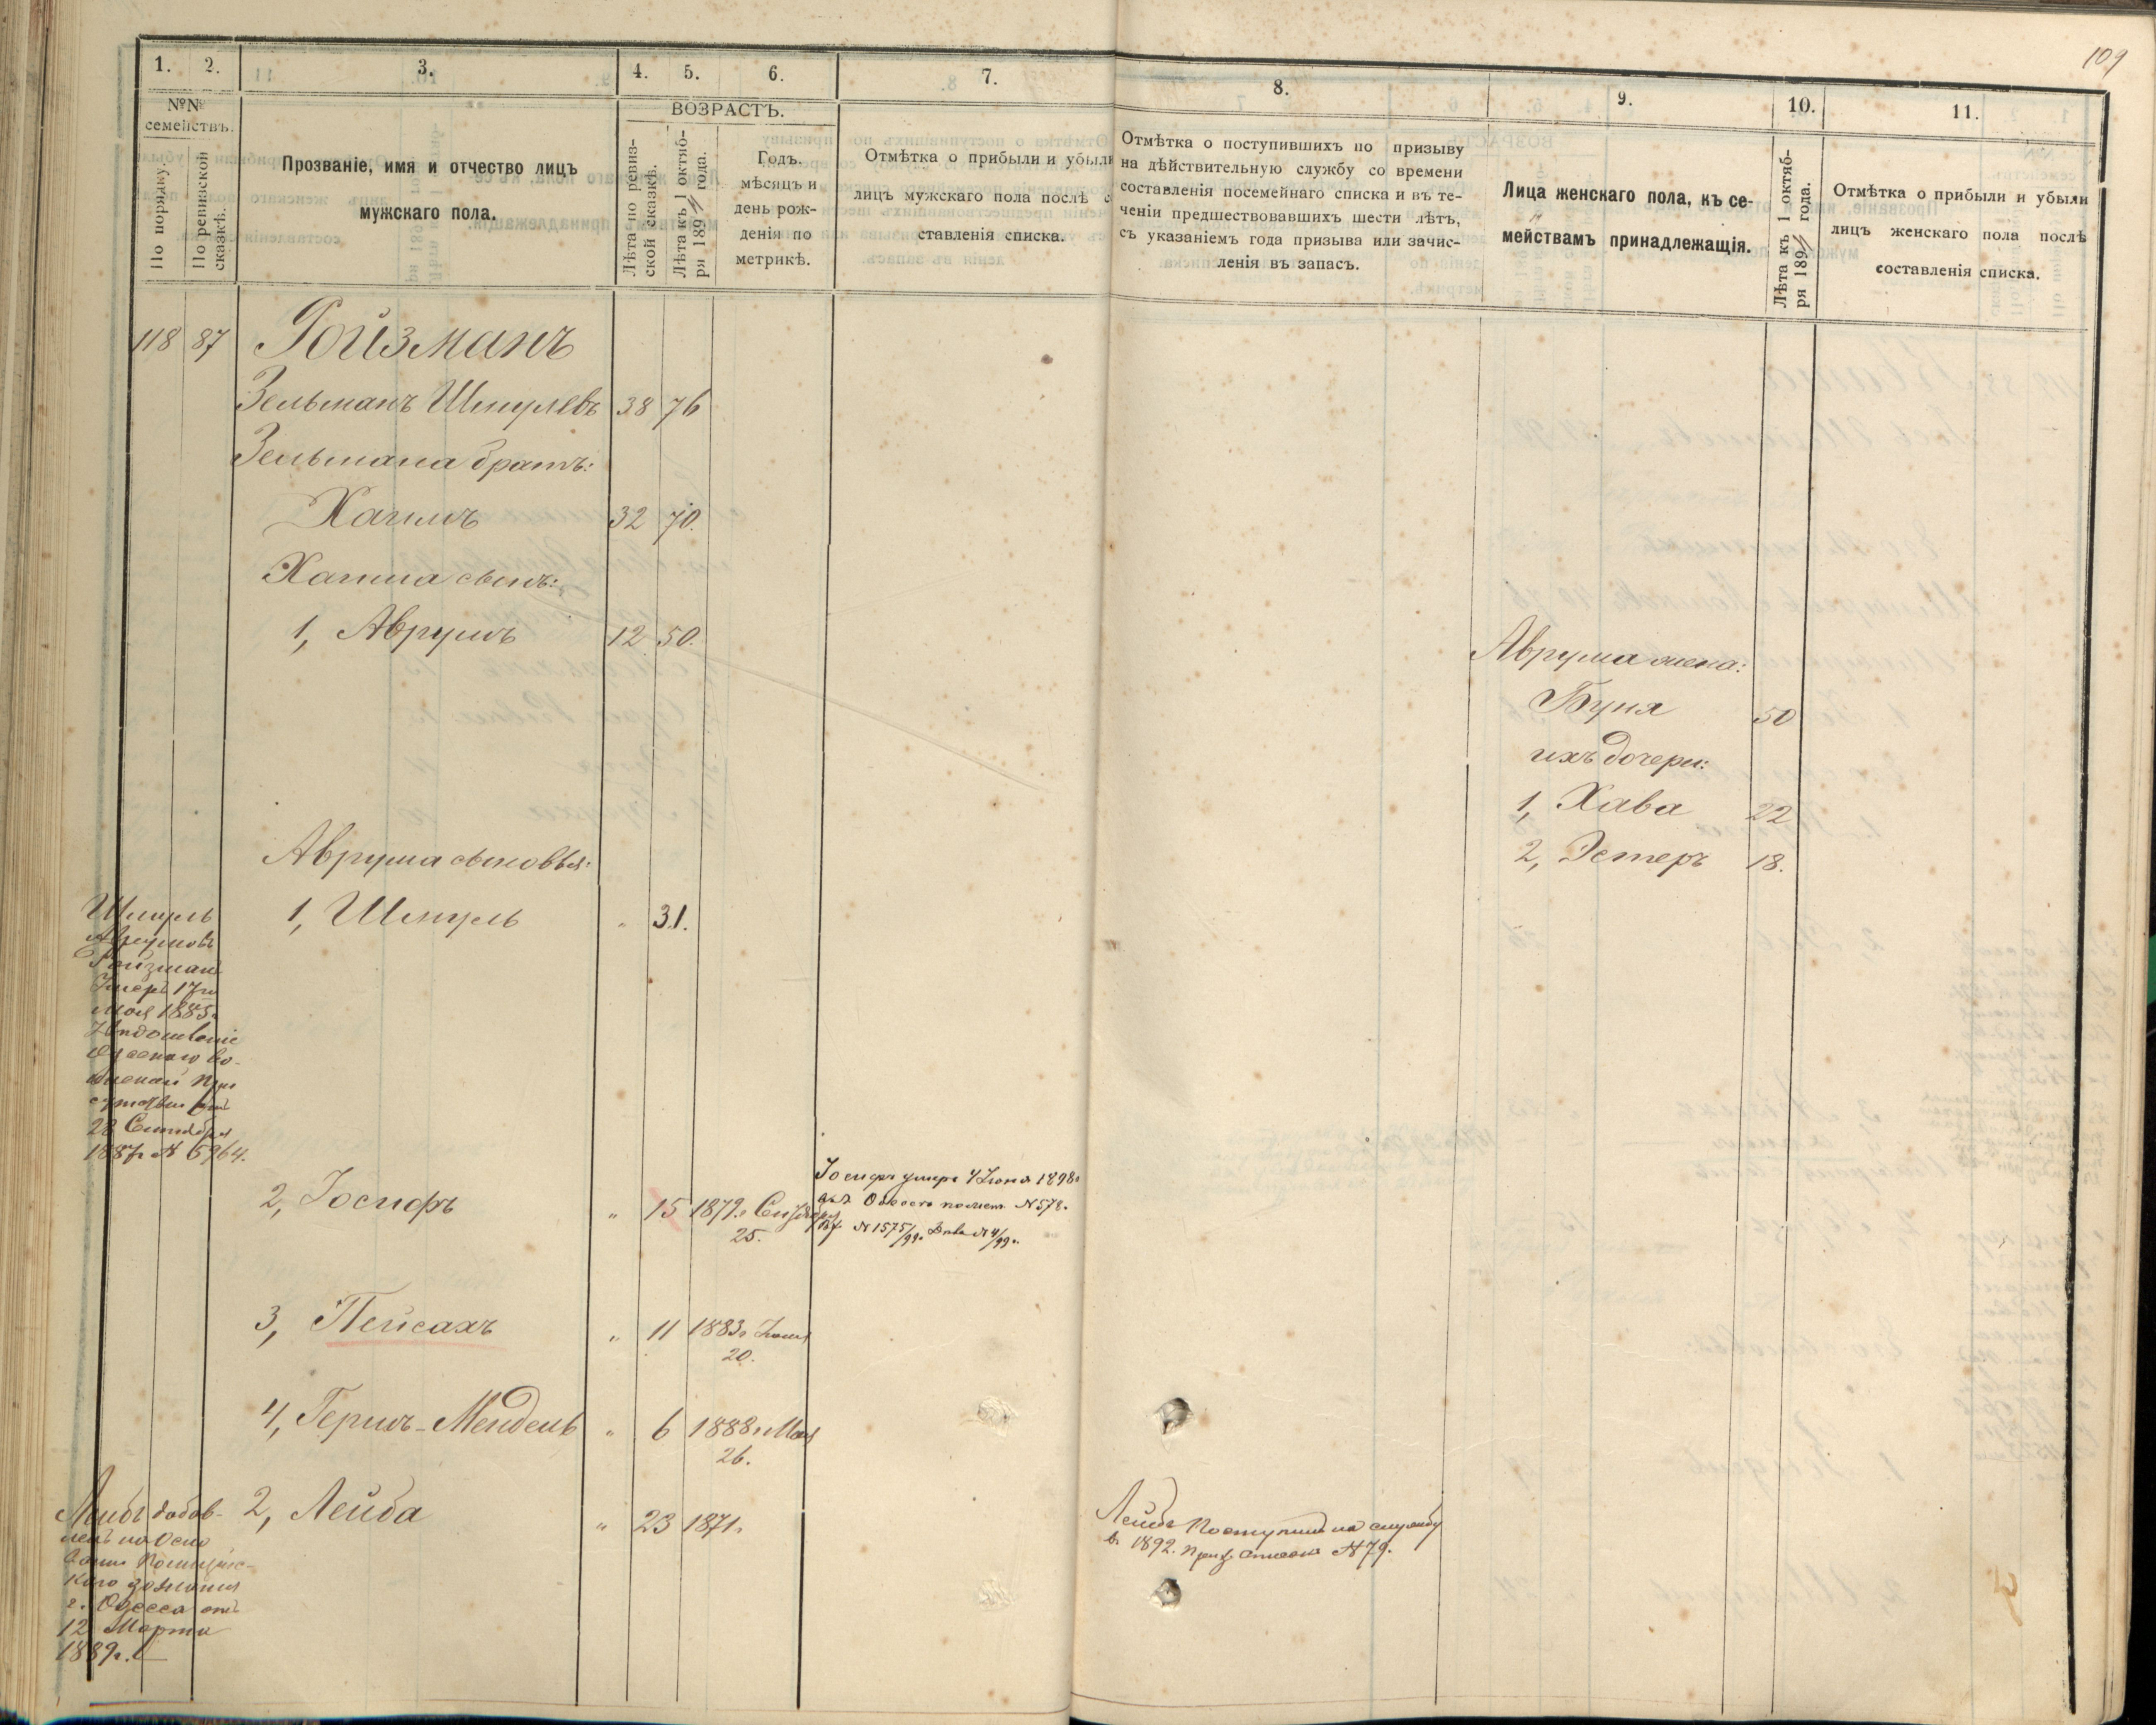 109
1. 2. 3. 4. 5. 6. 7. 8. 9. 10. 11.
№№
семействъ.
По порядку.
По ревизской
сказкѣ.
Прозваніе, имя и отчество лицъ
мужскаго пола.
ВОЗРАСТЪ.
Лѣта по ревиз-
ской сказкѣ.
Лѣта къ 1 октяб-
ря 1894 года.
Годъ.
мѣсяцъ и
день рож-
денія по
метрикѣ.
Отмѣтка о прибыли и убыли
лицъ мужскаго пола послѣ со
ставленія списка.
Отмѣтка о поступившихъ по призыву
на дѣйствительную службу со времени
составленія посемейнаго списка и въ те-
ченіи предшествовавшихъ шести лѣтъ,
съ указаніемъ года призыва или зачис-
ленія въ запасъ.
Лица женскаго пола, къ се-
мействамъ принадлежащія.
Лѣта къ 1 октяб-
ря 1894 года.
Отмѣтка о прибыли и убыли
лицъ женскаго пола послѣ
составленія списка.
118 87 Ройзманъ
Зельманъ Шмулевъ 38 76
Зельмана братъ:
Хаимъ 32 70.
Хаима сынъ:
1, Аврумъ 12 50.
Аврума жена:
Буня 50
ихъ дочери:
1, Хава 22
2, Эстеръ 18.
Аврума сыновья:
1, Шмуль " 31.
Шмуль
Аврумовъ
Ройзманъ
Умеръ 17го
мая 1885г.
28 Сентября
1887г № 5964.
2, Іосифъ " 15 1879г. Сентября
25.
Іосифъ умеръ 4 Іюня 1898г
№ 578.
№ 1575/99г. Дѣла № 4/99г.
3, Пейсахъ " 11 1883г. Іюня
20.
4, Гершъ-Мендель " 6 1888г. Мая
26.
2, Лейба " 23 1871г.
Лейба добав-
ленъ на осно
ваніи Полицейс-
каго дознанія
г. Одесса отъ
12 Марта
1889г.
Лейба Поступилъ на службу
въ 1892. Призъ. списокъ № 79.